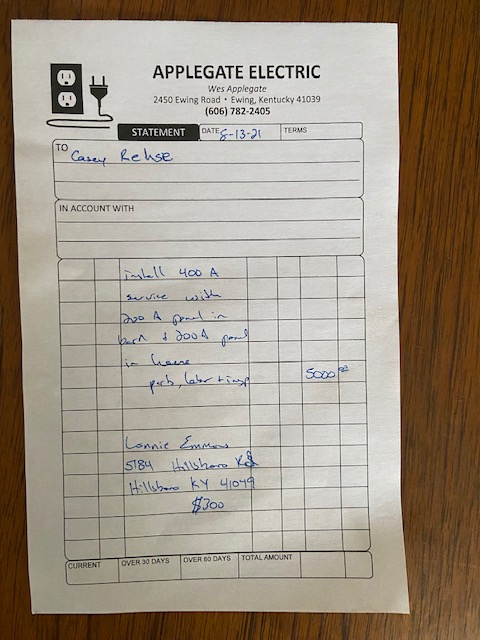 APPLEGATE ELECTRIC
Wes Applegate
2450 Ewing Road • Ewing, Kentucky 41039
(606) 782-2405
STATEMENT DATE 8-13-21 TERMS
TO Casey Rehse
IN ACCOUNT WITH
install 400 A
service with
200 A panel in
barn & 200A panel
in house
parts, labor & insp 5000
Lonnie Emmons
5184 Hillsboro Rd
Hillsboro KY 41049
$300
CURRENT OVER 30 DAYS OVER 60 DAYS TOTAL AMOUNT